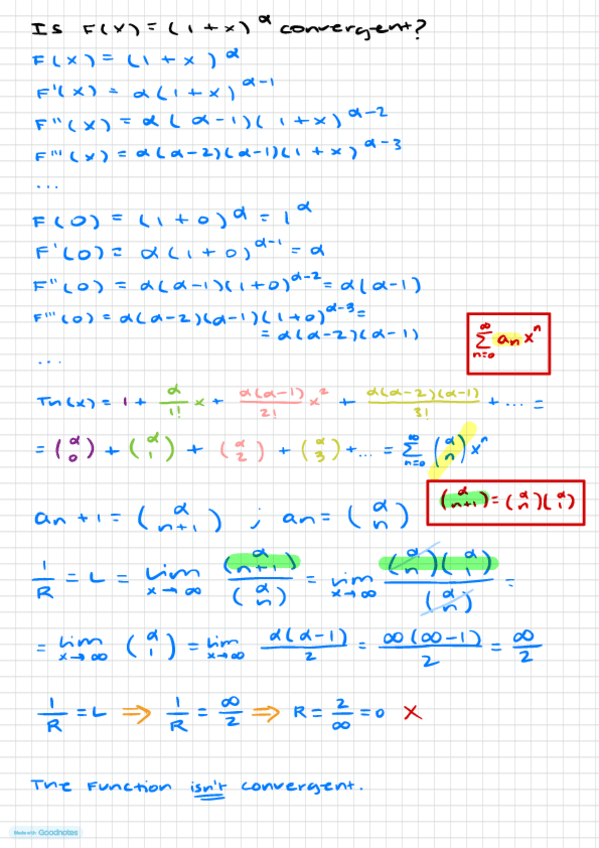 Is F(x) = (1+x)^α convergent?
F(x) = (1+x)^α
F'(x) = α(1+x)^α-1
F''(x) = α(α-1)(1+x)^α-2
F'''(x) = α(α-2)(α-1)(1+x)^α-3
...
F(0) = (1+0)^α = 1^α
F'(0) = α(1+0)^α-1 = α
F''(0) = α(α-1)(1+0)^α-2 = α(α-1)
F'''(0) = α(α-2)(α-1)(1+0)^α-3 =
= α(α-2)(α-1)
∞ Σ n=0 an x^n
...
Tn(x) = 1 + α/1! x + α(α-1)/2! x^2 + α(α-2)(α-1)/3! + ... =
= (α 0) + (α 1) + (α 2) + (α 3) + ... = ∞ Σ n=0 (α n) x^n
(α n+1) = (α n)(α 1)
an+1 = (α n+1) ; an = (α n)
1/R = L = lim x→∞ (α n+1)/(α n) = lim x→∞ (α n)(α 1)/(α n) =
= lim x→∞ (α 1) = lim x→∞ α(α-1)/2 = ∞(∞-1)/2 = ∞/2
1/R = L ⇒ 1/R = ∞/2 ⇒ R = 2/∞ = 0 ✗
The function isn't convergent.
Made with Goodnotes